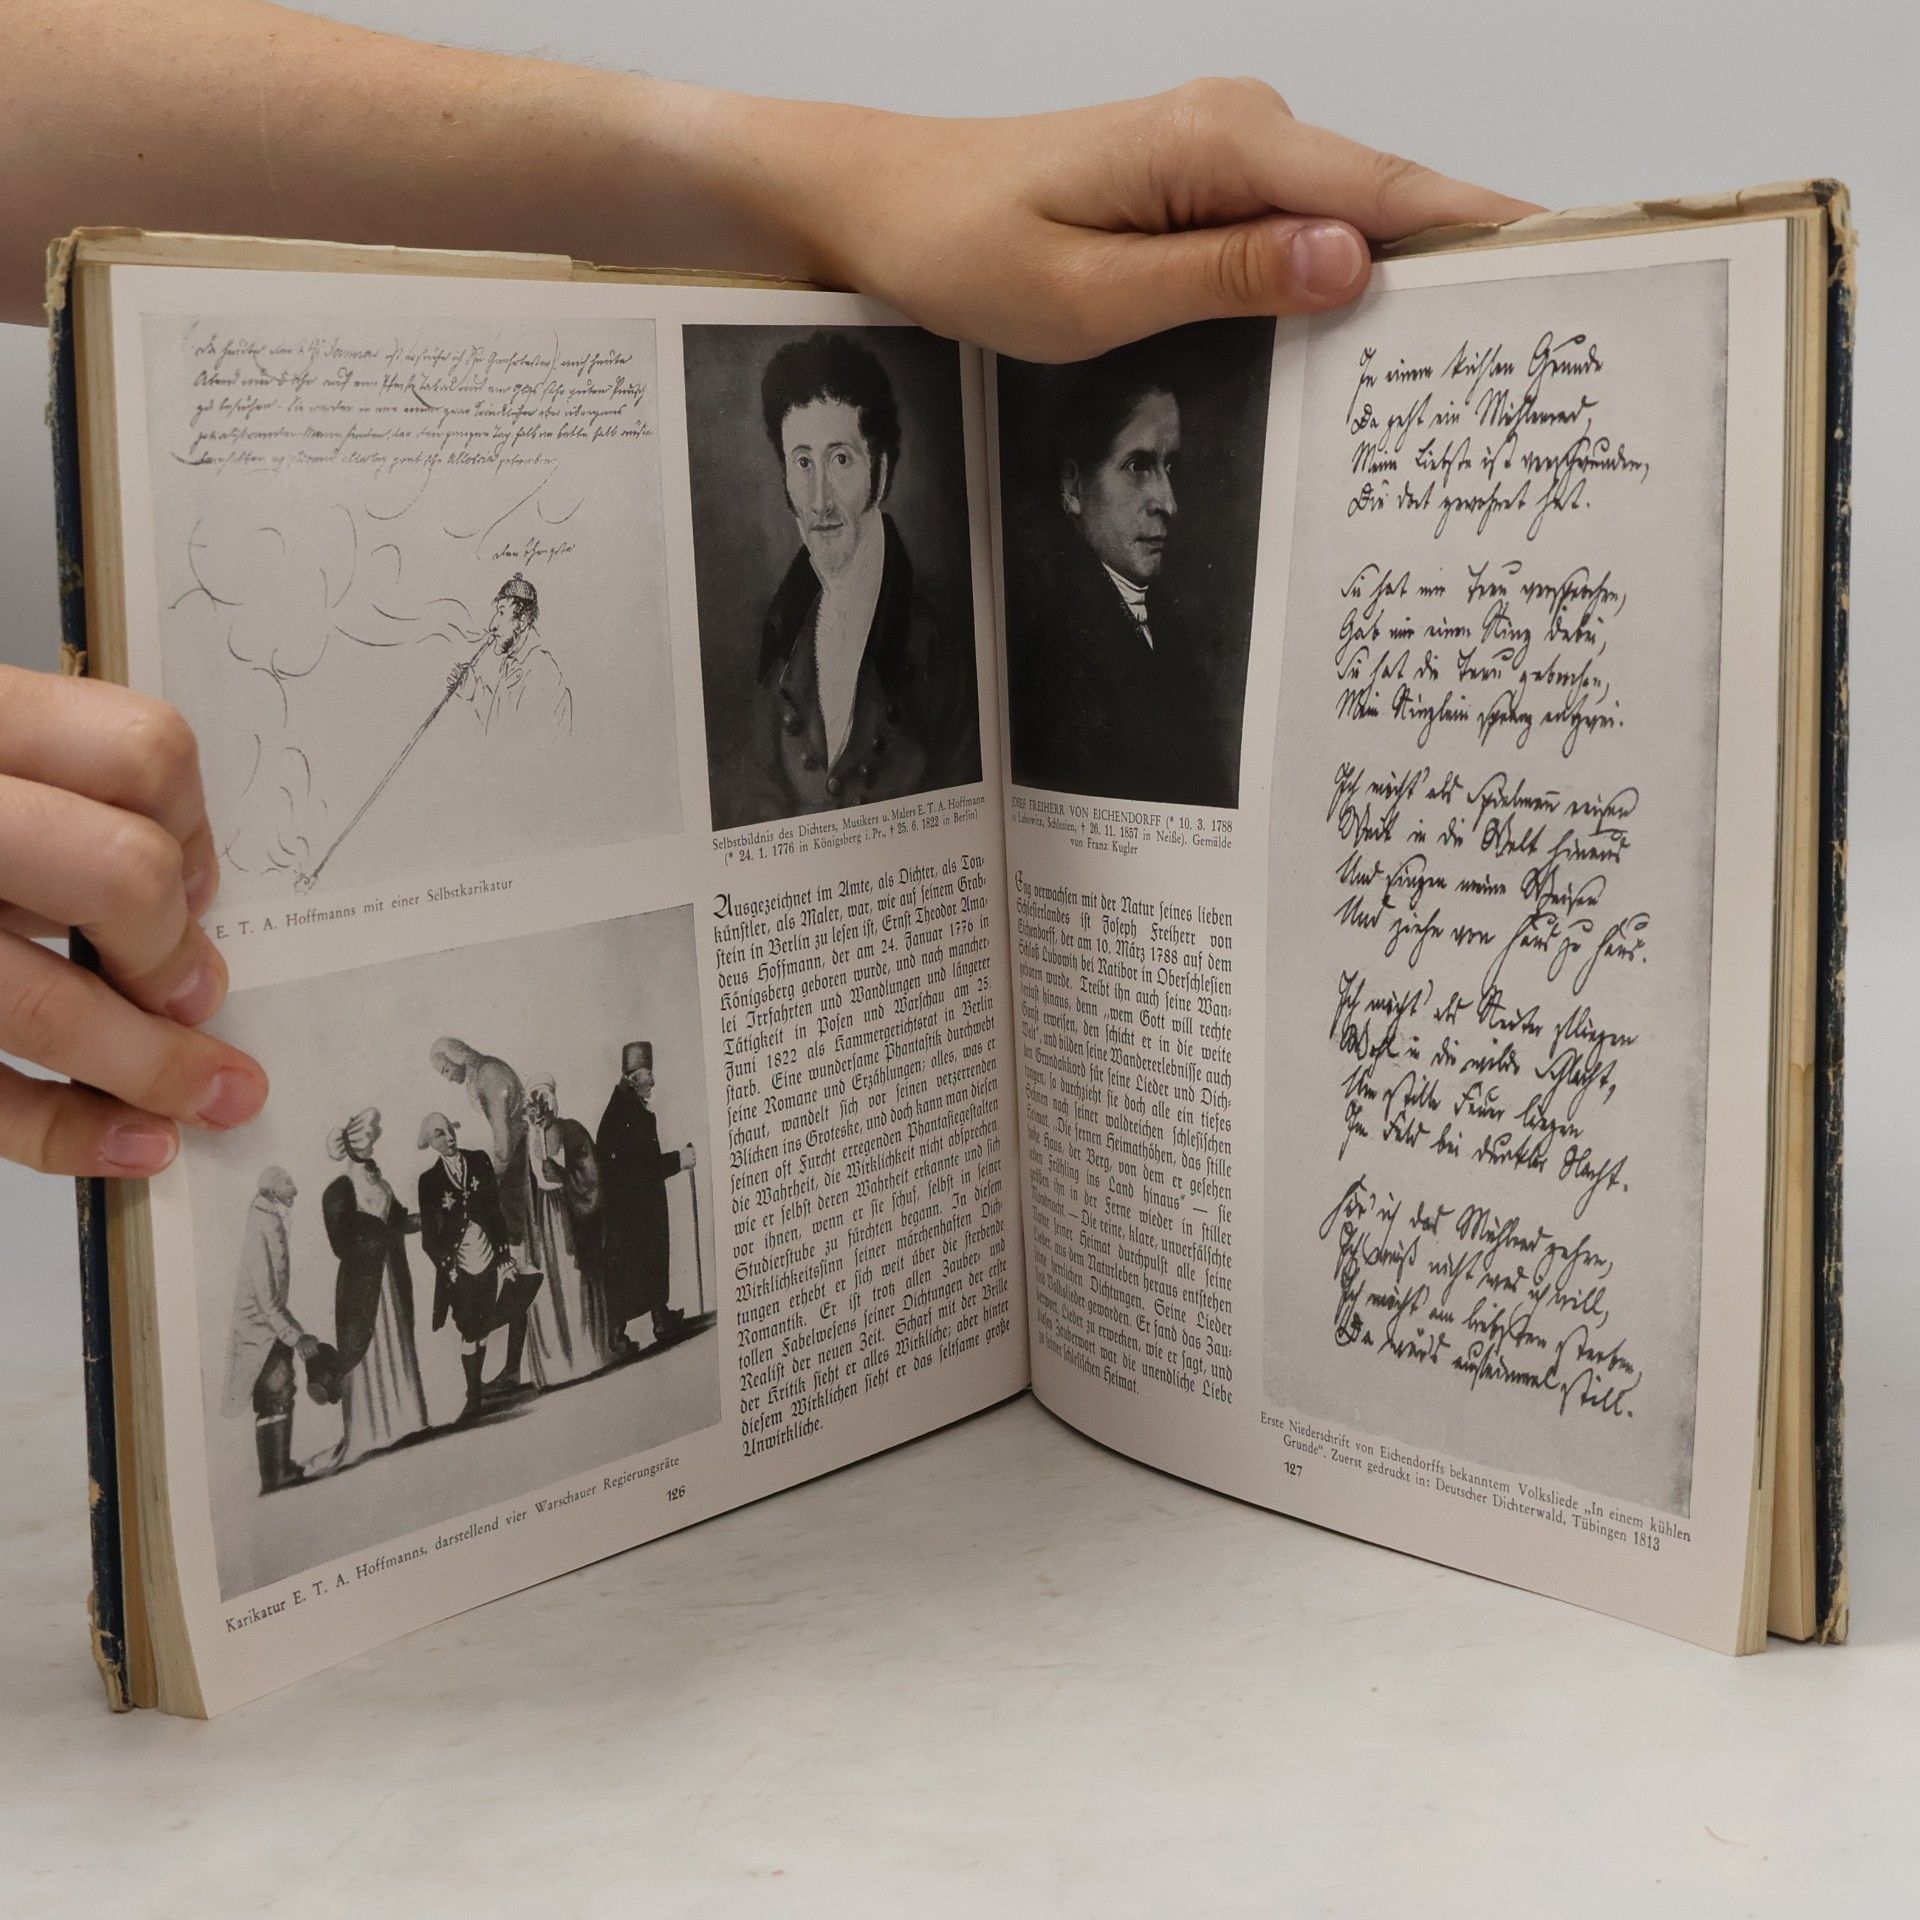 E. T. A. Hoffmanns mit einer Selbstkarikatur
Karikatur E. T. A. Hoffmanns, darstellend vier Warschauer Regierungsräte
126
Selbstbildnis des Dichters, Musikers u. Malers E. T. A. Hoffmann
(* 24. 1. 1776 in Königsberg i. Pr., † 25. 6. 1822 in Berlin)
Ausgezeichnet im Amte, als Dichter, als Ton-
künstler, als Maler, war, wie auf seinem Grab-
stein in Berlin zu lesen ist, Ernst Theodor Ama-
deus Hoffmann, der am 24. Januar 1776 in
Königsberg geboren wurde, und nach mancher-
lei Irrfahrten und Wandlungen und längerer
Tätigkeit in Posen und Warschau am 25.
Juni 1822 als Kammergerichtsrat in Berlin
starb. Eine wundersame Phantastik durchwebt
seine Romane und Erzählungen; alles, was er
schaut, wandelt sich vor seinen verzerrenden
Blicken ins Groteske, und doch kann man diesen
seinen oft Furcht erregenden Phantasiegestalten
die Wahrheit, die Wirklichkeit nicht absprechen
wie er selbst deren Wahrheit erkannte und sich
vor ihnen, wenn er sie schuf, selbst in seiner
Studierstube zu fürchten begann. In diesem
Wirklichkeitssinn seiner märchenhaften Dich-
tungen erhebt er sich weit über die sterbende
Romantik. Er ist trotz allen Zauber- und
tollen Fabelwesens seiner Dichtungen der erste
Realist der neuen Zeit. Scharf mit der Brille
der Kritik sieht er alles Wirkliche; aber hinter
diesem Wirklichen sieht er das seltsame große
Unwirkliche.
JOSEF FREIHERR VON EICHENDORFF (* 10. 3. 1788
Lubowitz, Schlesien, † 26. 11. 1857 in Neiße). Gemälde
von Franz Kugler
Eng verwachsen mit der Natur seines lieben
Schlesierlandes ist Joseph Freiherr von
Eichendorff, der am 10. März 1788 auf dem
Schloß Lubowitz bei Ratibor in Oberschlesien
geboren wurde. Treibt ihn auch seine Wan-
derlust hinaus, denn „wem Gott will rechte
Gunst erweisen, den schickt er in die weite
Welt“, und bilden seine Wandererlebnisse auch
den Grundakkord für seine Lieder und Dich-
tungen, so durchzieht sie doch alle ein tiefes
Sehnen nach seiner waldreichen schlesischen
Heimat. „Die fernen Heimathöhen, das stille
hohe Haus, der Berg, von dem er gesehen
jeden Frühling ins Land hinaus“ — sie
grüßen ihn in der Ferne wieder in stiller
Mondnacht. — Die reine, klare, unverfälschte
Natur seiner Heimat durchpulst alle seine
Lieder, aus dem Naturleben heraus entstehen
seine herrlichen Dichtungen. Seine Lieder
sind Volkslieder geworden. Er fand das Zau-
berwort, Lieder zu erwecken, wie er sagt, und
dieses Zauberwort war die unendliche Liebe
zu seiner schlesischen Heimat.
In einem kühlen Grunde
Da geht ein Mühlenrad,
Meine Liebste ist verschwunden,
Die dort gewohnet hat.
Sie hat mir Treu versprochen,
Gab mir einen Ring dabei,
Sie hat die Treu gebrochen,
Mein Ringlein sprang entzwei.
Ich möcht' als Spielmann reisen
Weit in die Welt hinaus
Und singen meine Weisen
Und ziehn von Haus zu Haus.
Ich möcht' als Reiter fliegen
Wohl in die wilde Schlacht,
Um stille Feuer liegen
Im Feld bei dunkler Nacht.
Hör' ich das Mühlrad gehen,
Ich weiß nicht was ich will,
Ich möcht am liebsten sterben,
Da wär's auf einmal still.
Erste Niederschrift von Eichendorffs bekanntem Volksliede „In einem kühlen
Grunde“. Zuerst gedruckt in: Deutscher Dichterwald, Tübingen 1813
127